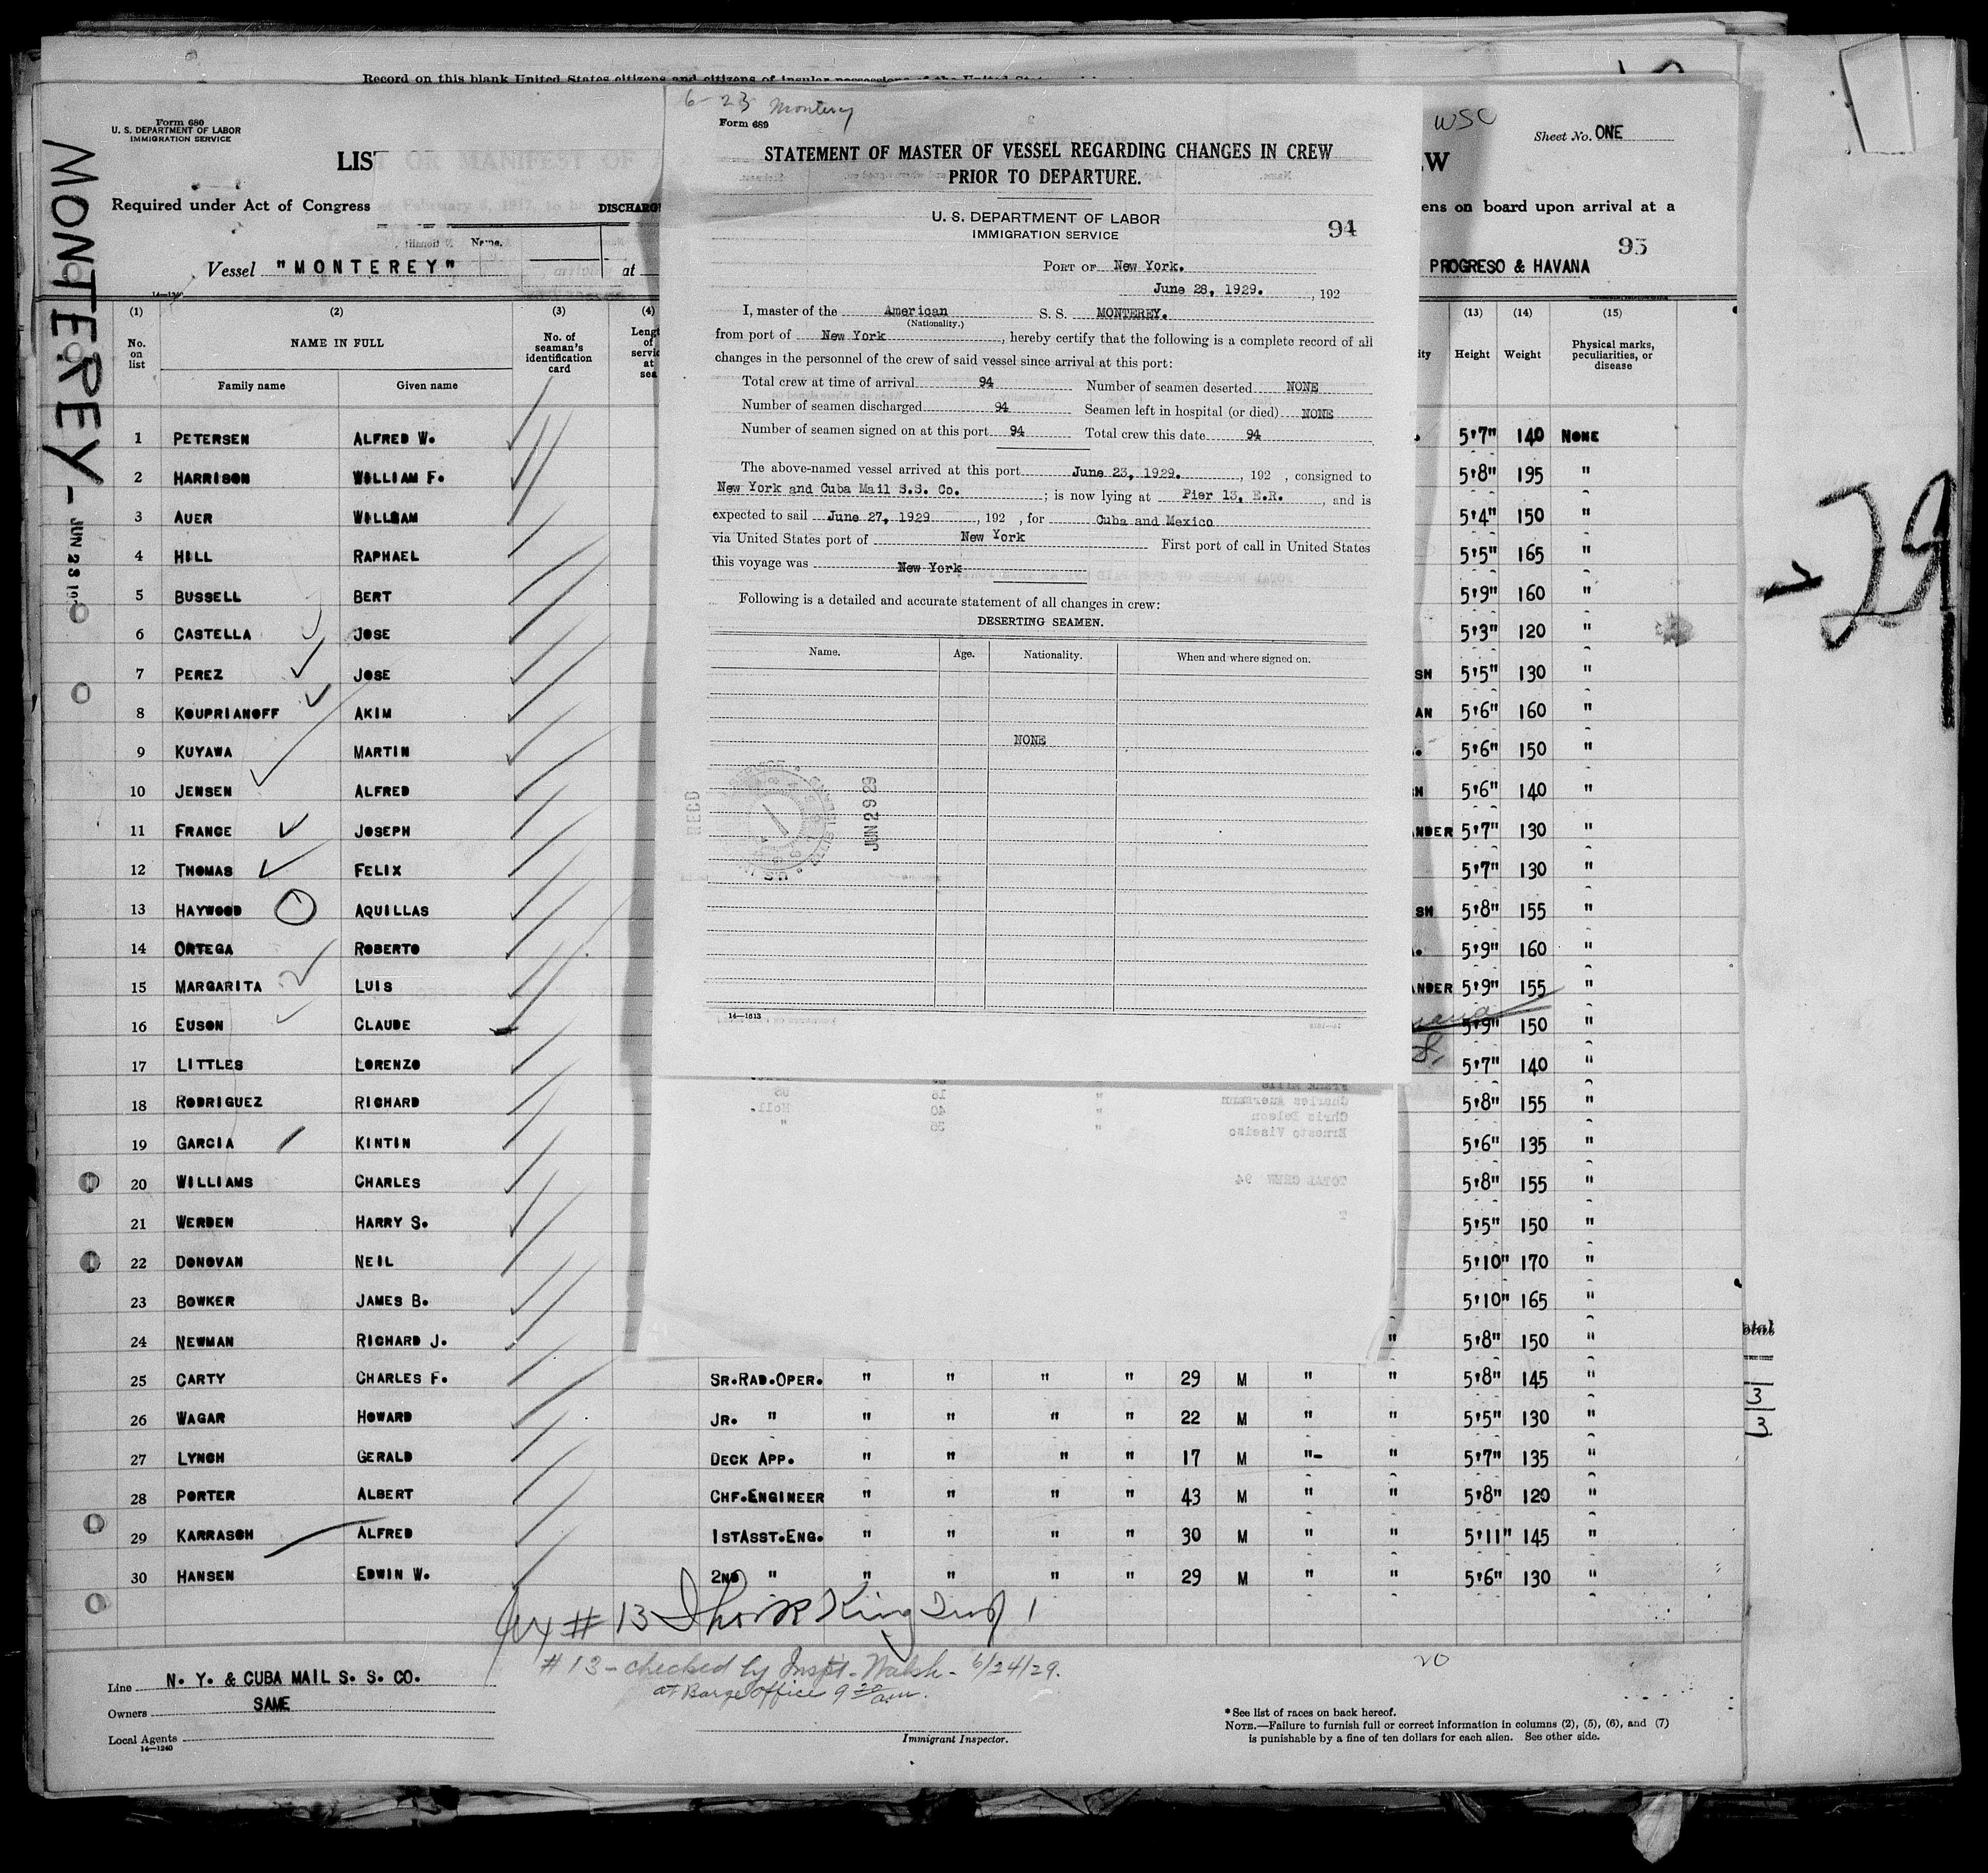 Record on this blank United States citizens and citizens of insular possessions of the United
Form 680
U. S. DEPARTMENT OF LABOR
IMMIGRATION SERVICE
LIST OR MANIFEST OF
Required under Act of Congress
DISCHARG
Vessel "MONTEREY" at
MONTEREY -
JUN 23 19
WSC
Sheet No. ONE
EW
ens on board upon arrival at a
95
PROGRESO & HAVANA
6-23 Monterey
Form 689
STATEMENT OF MASTER OF VESSEL REGARDING CHANGES IN CREW
PRIOR TO DEPARTURE.
U. S. DEPARTMENT OF LABOR
IMMIGRATION SERVICE
94
PORT OF New York.
June 28, 1929. , 192
I, master of the American S. S. MONTEREY.
(Nationality.)
from port of New York , hereby certify that the following is a complete record of all
changes in the personnel of the crew of said vessel since arrival at this port:
Total crew at time of arrival 94 Number of seamen deserted NONE
Number of seamen discharged 94 Seamen left in hospital (or died) NONE
Number of seamen signed on at this port 94 Total crew this date 94
The above-named vessel arrived at this port June 23, 1929. , 192 , consigned to
New York and Cuba Mail S.S. Co. ; is now lying at Pier 13, E.R. , and is
expected to sail June 27, 1929 , 192 , for Cuba and Mexico
via United States port of New York First port of call in United States
this voyage was New York
Following is a detailed and accurate statement of all changes in crew:
DESERTING SEAMEN.
Name. Age. Nationality. When and where signed on.
NONE
RECD
JUN 29 29
14—1613
(1) (2) (3) (4) (13) (14) (15)
No. on list NAME IN FULL No. of seaman's identification card Height Weight Physical marks, peculiarities, or disease
Family name Given name
1 PETERSEN ALFRED W. 5'7" 140 NONE
2 HARRISON WILLIAM F. 5'8" 195 "
3 AUER WILLIAM 5'4" 150 "
4 HILL RAPHAEL 5'5" 165 "
5 BUSSELL BERT 5'9" 160 "
6 CASTELLA JOSE 5'3" 120 "
7 PEREZ JOSE SH 5'5" 130 "
8 KOUPRIANOFF AKIM AN 5'6" 160 "
9 KUYAWA MARTIN 5'6" 150 "
10 JENSEN ALFRED H 5'6" 140 "
11 FRANCE JOSEPH ANDER 5'7" 130 "
12 THOMAS FELIX 5'7" 130 "
13 HAYWOOD AQUILLAS SH 5'8" 155 "
14 ORTEGA ROBERTO 5'9" 160 "
15 MARGARITA LUIS ANDER 5'9" 155 "
16 EUSON CLAUDE 5'9" 150 "
17 LITTLES LORENZO 5'7" 140 "
18 RODRIGUEZ RICHARD 5'8" 155 "
19 GARCIA KINTIN 5'6" 135 "
20 WILLIAMS CHARLES 5'8" 155 "
21 WERDEN HARRY S. 5'5" 150 "
22 DONOVAN NEIL 5'10" 170 "
23 BOWKER JAMES B. 5'10" 165 "
24 NEWMAN RICHARD J. " 5'8" 150 "
25 CARTY CHARLES F. SR.RAD.OPER. " " " " 29 M " " 5'8" 145 "
26 WAGAR HOWARD JR. " " " " " 22 M " " 5'5" 130 "
27 LYNCH GERALD DECK APP. " " " " 17 M "- " 5'7" 135 "
28 PORTER ALBERT CHF.ENGINEER " " " " 43 M " " 5'8" 120 "
29 KARRASCH ALFRED 1STASST.ENG. " " " " 30 M " " 5'11" 145 "
30 HANSEN EDWIN W. 2ND " " " " " 29 M " " 5'6" 130 "
# 13 King
# 13 - checked by Inspt. Walsh - 6/24/29.
at Barge office 9 30 am.
20
Line N. Y. & CUBA MAIL S. S. CO.
Owners SAME
Local Agents
14—1240
Immigrant Inspector.
* See list of races on back hereof.
NOTE.—Failure to furnish full or correct information in columns (2), (5), (6), and (7)
is punishable by a fine of ten dollars for each alien. See other side.
TOTAL CREW 94
3
3